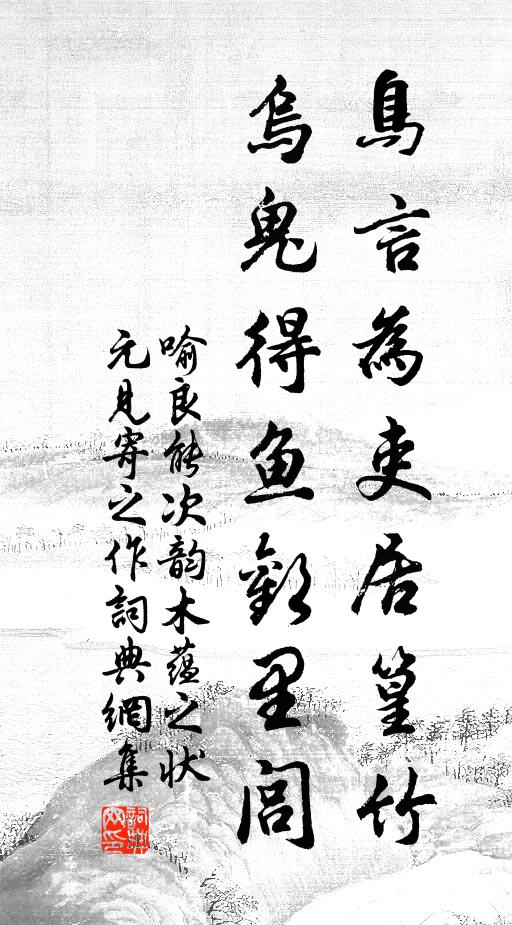 鳥言為吏居篁竹
烏鬼得魚歡里閭
喻良能次韵木蕴之状
元見寄之作詞典網集